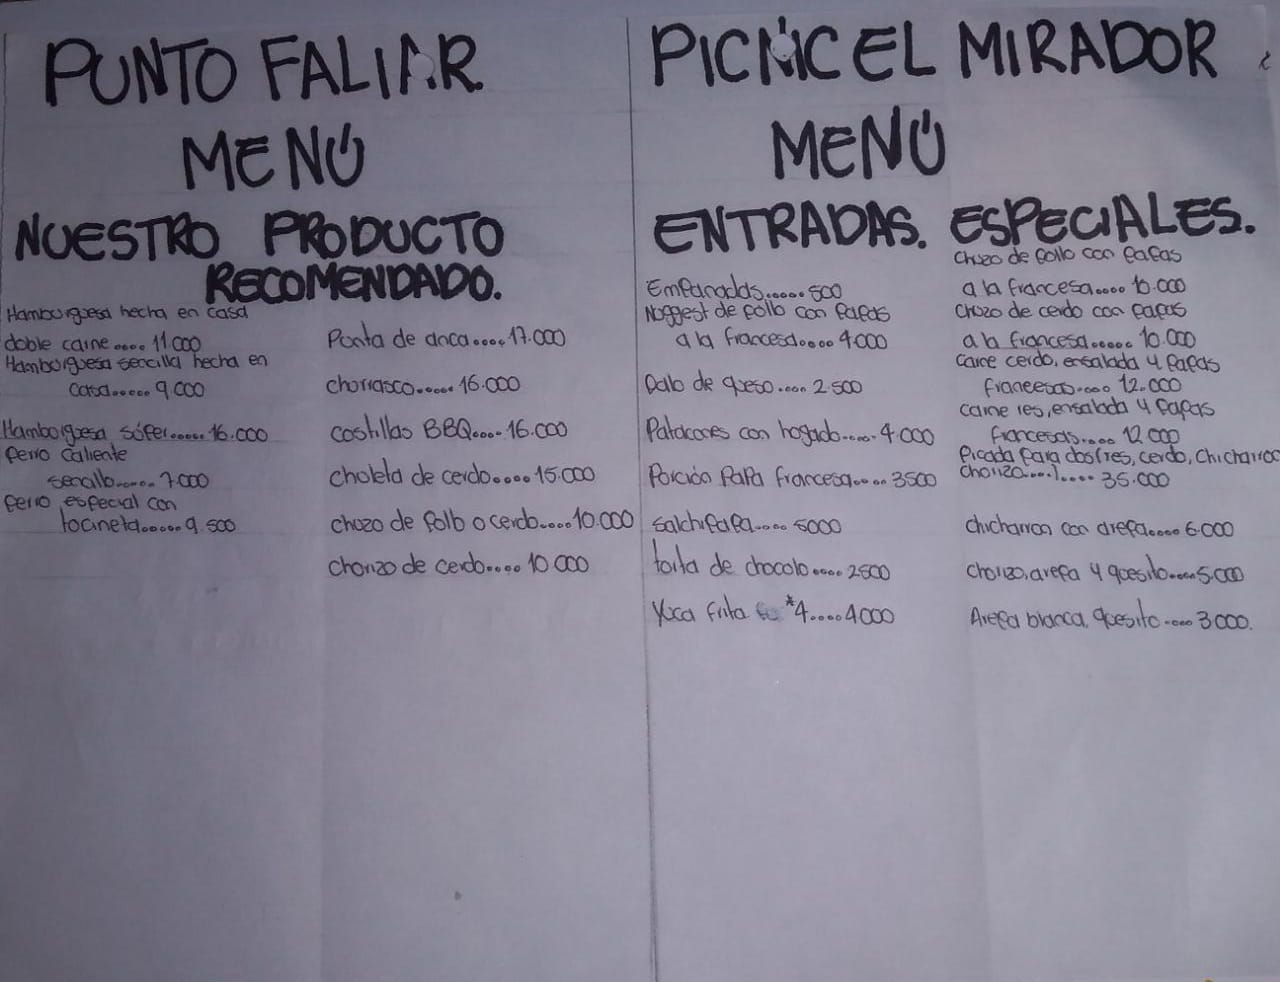 PUNTO FALIAR
MENÚ
NUESTRO PRODUCTO
RECOMENDADO.
Hamburguesa hecha en casa
doble carne.... 11.000
Hamburguesa sencilla hecha en
casa..... 9.000
Hamburguesa súper..... 16.000
perro caliente
sencillo...... 7.000
perro especial con
tocineta..... 9.500
Punta de anca.... 17.000
chorrasco..... 16.000
costillas BBQ.... 16.000
choleta de cerdo.... 15.000
chozo de pollo o cerdo.... 10.000
chorizo de cerdo.... 10.000
PICNIC EL MIRADOR
MENÚ
ENTRADAS.
Empanadas..... 500
Noggest de pollo con papas
a la francesa..... 4.000
palo de queso.... 2.500
Patacones con hogado..... 4.000
Porción papa francesa.... 3500
salchipapa.... 5000
torta de chocolo.... 2500
Yuca frita *4.... 4000
ESPECIALES.
chozo de pollo con papas
a la francesa.... 10.000
chozo de cerdo con papas
a la francesa..... 10.000
carne cerdo, ensalada y papas
francesas.... 12.000
carne res, ensalada y papas
francesas.... 12.000
picada para dos pres, cerdo, chicharron
chorizo.... 35.000
chicharron con arepa.... 6.000
chorizo, arepa y quesito.... 5.000
Arepa blanca, quesito.... 3000.